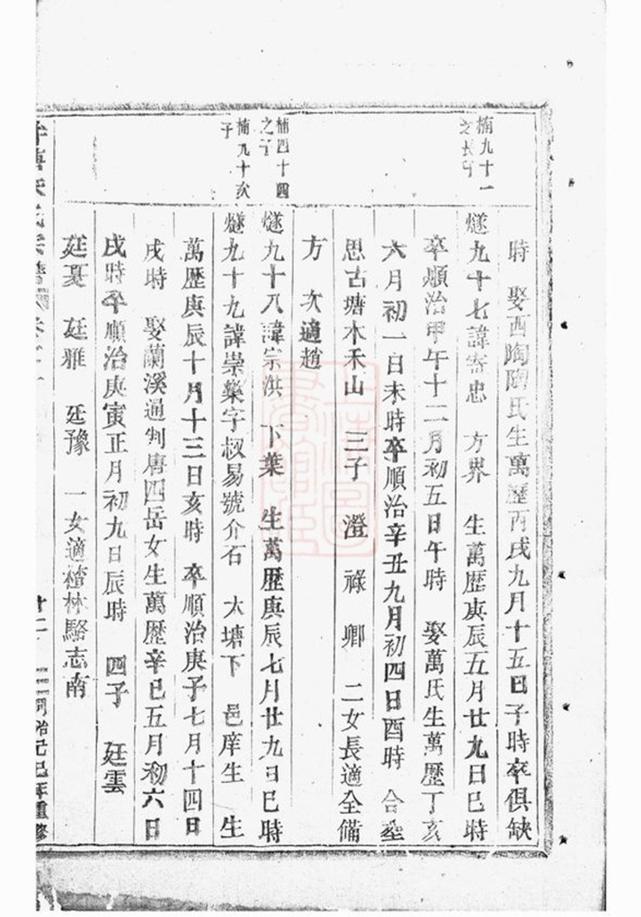 楠九十一
之長子
楠四十四
之子
楠九十次
子
時 娶西陶陶氏生萬歷丙戌九月十五日子時卒俱缺
燧九十七諱寄忠 方界 生萬歷庚辰五月廿九日巳時
卒順治甲午十二月初五日午時 娶萬氏生萬歷丁亥
六月初一日未時卒順治辛丑九月初四日酉時 合塟
思古塘木禾山 三子 澄 祿 卿 二女長適全備
方 次適趙
燧九十八諱宗洪 下葉 生萬歷庚辰七月廿九日巳時
燧九十九諱崇藥字叔易號介石 大塘下 邑庠生 生
萬歷庚辰十月十三日亥時 卒順治庚子七月十四日
戌時 娶蘭溪通判唐四岳女生萬歷辛巳五月初六日
戌時卒順治庚寅正月初九日辰時 四子 廷雲
廷夏 廷雅 廷豫 一女適楂林駱志南
廿二
同治己巳年重修